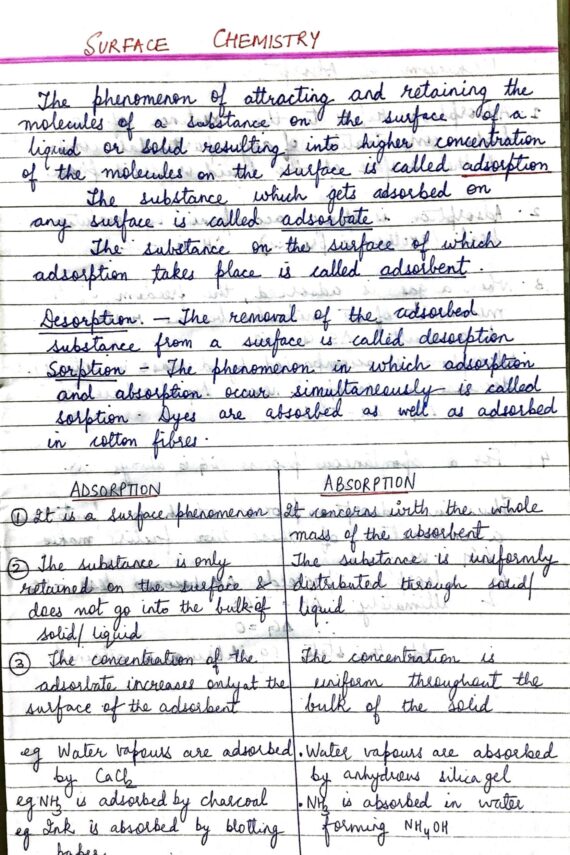 SURFACE CHEMISTRY
The phenomenon of attracting and retaining the
molecules of a substance on the surface of a
liquid or solid resulting into higher concentration
of the molecules on the surface is called adsorption
The substance which gets adsorbed on
any surface is called adsorbate.
The substance on the surface of which
adsorption takes place is called adsorbent.
Desorption. — The removal of the adsorbed
substance from a surface is called desorption
Sorption – The phenomenon in which adsorption
and absorption occur simultaneously is called
sorption. Dyes are absorbed as well as adsorbed
in cotton fibres.
ADSORPTION
① It is a surface phenomenon
② The substance is only
retained on the surface &
does not go into the bulk of
solid/liquid
③ The concentration of the
adsorbate increases only at the
surface of the adsorbent
eg Water vapours are adsorbed
by CaCl2
eg NH3 is adsorbed by charcoal
eg Ink is absorbed by blotting
paper
ABSORPTION
It concerns with the whole
mass of the absorbent
The substance is uniformly
distributed through solid/
liquid
The concentration is
uniform throughout the
bulk of the solid
• Water vapours are absorbed
by anhydrous silica gel
• NH3 is absorbed in water
forming NH4OH